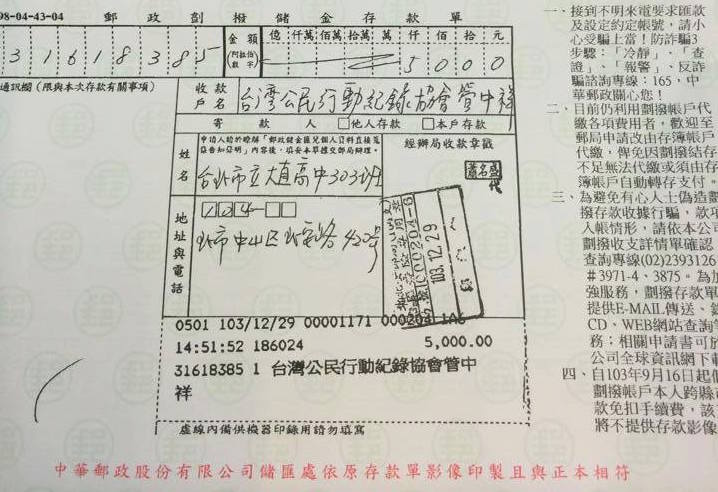 98-04-43-04 郵政劃撥儲金存款單
31618385
金額
(阿拉伯數字)
億 仟萬 佰萬 拾萬 萬 仟 佰 拾 元
5 0 0 0
通訊欄(限與本次存款有關事項)
收款戶名
台灣公民行動紀錄協會管中祥
寄款人 □他人存款 □本戶存款
姓名
台北市立大直高中303班
經辦局收款章戳
蕭名盛
代
地址與電話
104-□□
北市中山區北安路420號
103.12.29
0501 103/12/29 00001171 000204 1A6
14:51:52 186024 5,000.00
31618385 1 台灣公民行動紀錄協會管中
祥
虛線內備供機器印錄用請勿填寫
中華郵政股份有限公司儲匯處依原存款單影像印製且與正本相符
一、接到不明來電要求匯款
及設定約定帳號,請小
心受騙上當!防詐騙3
步驟:「冷靜」、「查
證」、「報警」、反詐
騙諮詢專線:165,中
華郵政關心您!
二、目前仍利用劃撥帳戶代
繳各項費用者,歡迎至
郵局申請改由存簿帳戶
代繳,俾免因劃撥結存
不足無法代繳或須由存
簿帳戶自動轉存支付。
三、為避免有心人士偽造劃
撥存款收據行騙,款項
入帳情形,請依本公司
劃撥收支詳情單確認
查詢專線(02)2393126
#3971-4、3875。為加
強服務,劃撥存款單
提供E-MAIL傳送、
CD、WEB網站查詢
務;相關申請書可於
公司全球資訊網下載
四、自103年9月16日起
劃撥帳戶本人跨縣
款免扣手續費,該
將不提供存款影像